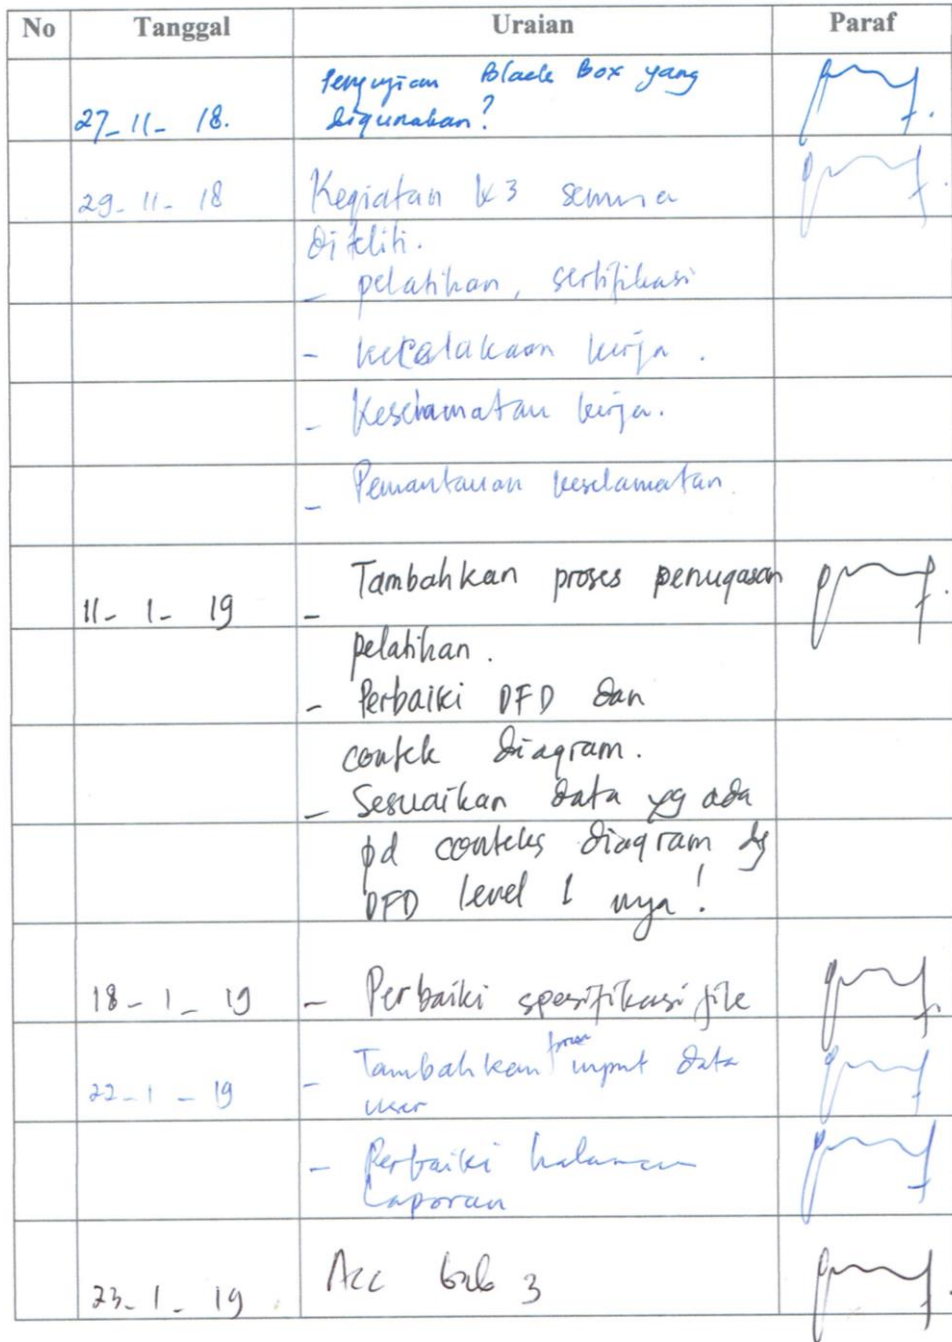 No Tanggal Uraian Paraf
Pengujian Black Box yang
27-11-18. digunakan?
29-11-18 Kegiatan K3 semua
diteliti.
- pelatihan, sertifikasi
- kecelakaan kerja.
- Keselamatan kerja.
- Pemantauan keselamatan.
11-1-19 - Tambahkan proses penugasan
pelatihan.
- Perbaiki DFD dan
contek diagram.
- Sesuaikan data yg ada
pd conteks diagram dg
DFD level 1 nya!
18-1-19 - Perbaiki spesifikasi file
22-1-19 - Tambahkan proses input data
user
- Perbaiki halaman
Laporan
23-1-19. Acc bab 3